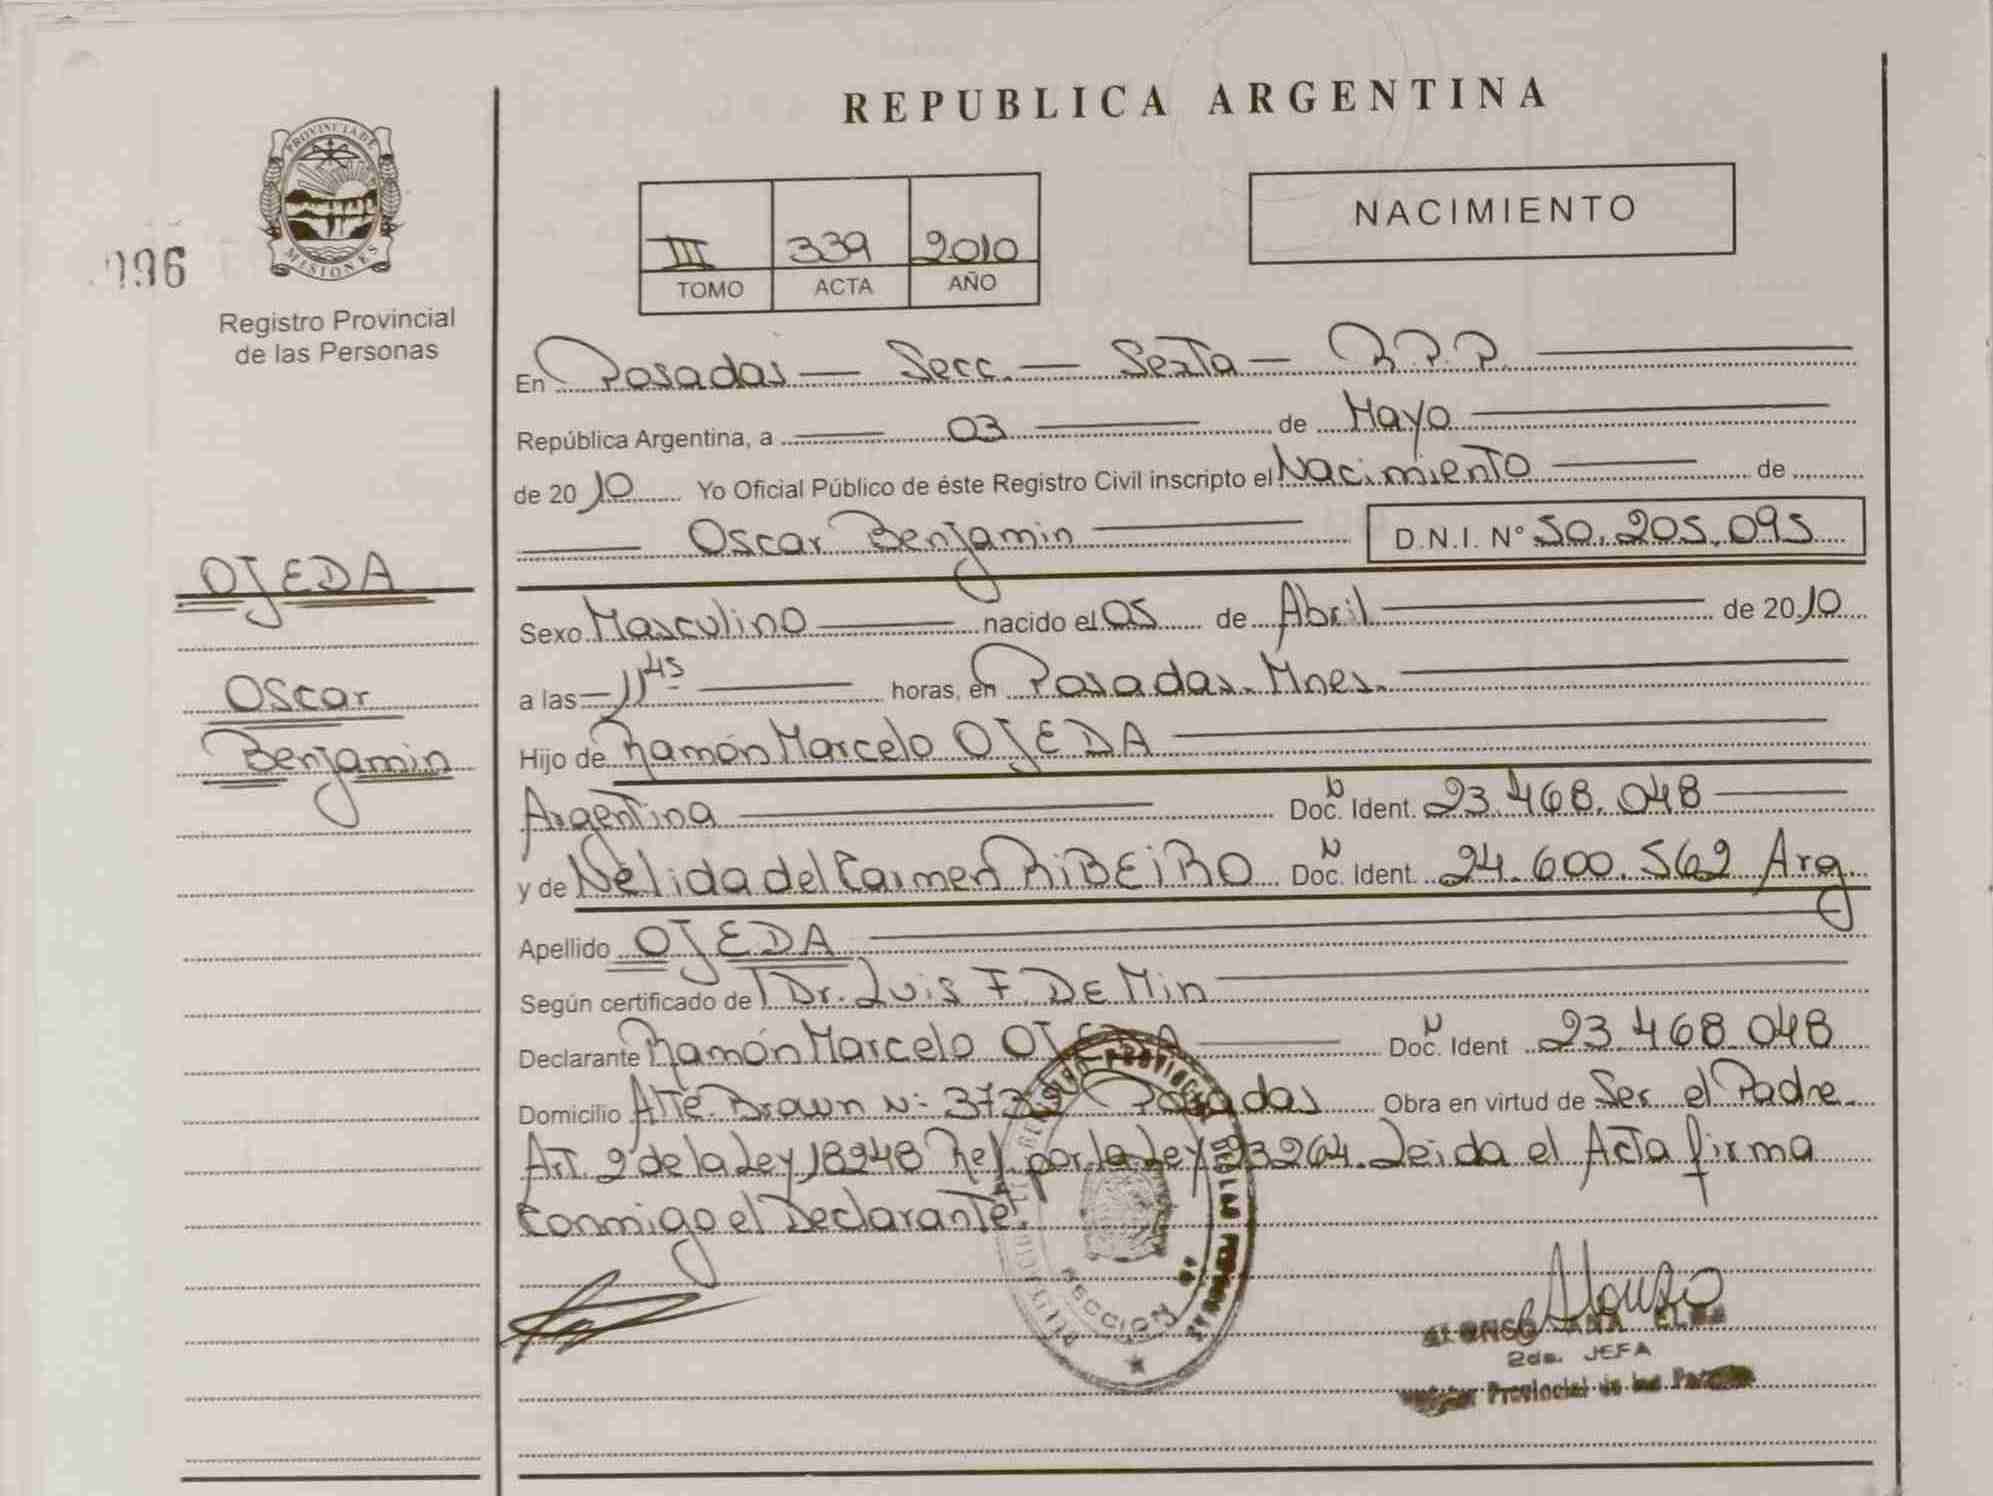 REPUBLICA ARGENTINA
PROVINCIA DE
MISIONES
Registro Provincial
de las Personas
196
III 339 2010
TOMO ACTA AÑO
NACIMIENTO
En Posadas — Secc. — Sexta — R.P.P.
República Argentina, a 03 de Mayo
de 2010 Yo Oficial Público de éste Registro Civil inscripto el Nacimiento de
Oscar Benjamin D.N.I. N° 50.205.095
OJEDA
Oscar
Benjamin
Sexo Masculino nacido el 05 de Abril de 2010
a las 11 45 horas, en Posadas. Mnes.
Hijo de Ramón Marcelo OJEDA
Argentina Doc. N Ident. 23.468.048
y de Nélida del Carmen RIBEIRO Doc. N Ident. 24.600.562 Arg.
Apellido OJEDA
Según certificado de Dr. Luis F. DE Min
Declarante Ramón Marcelo OJEDA Doc. N Ident 23.468.048
Domicilio Alte. Brown N: 3739 Posadas Obra en virtud de Ser el Padre.
Art. 2 de la Ley 18248 Ref. por la Ley 23264. Leida el Acta firma
Conmigo el Declarante.
SECCION
Alonso
ALONSO ANA ELBA
2da. JEFA
Provincial de las